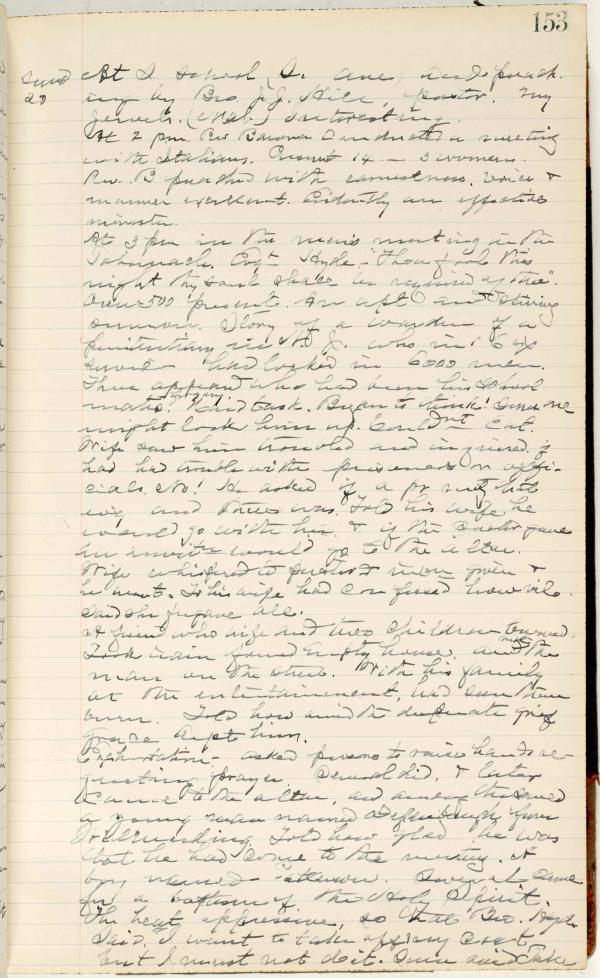 153
Sund At S School (S. Ave) and preach-
20 ing by Bro. J. J. Hill, pastor. My
Jewels. (Mal.) Interesting.
At 2 pm Rev Conducted a meeting
with Italians. Present 14 — 3 women.
Rev. B preached with earnestness, voice &
manner excellent. Evidently an effective
minister.
At 3 pm in the men's meeting in the
Tabernacle. Evgt Hyde - "Thou fool this
night thy soul shall be required of thee".
Over 500 present. An apt and stirring
sermon. Story of a warden of a
penitentiary in N. J. who in 6
had locked in 6000 men.
Three appeared who had been his school
mates. task. Began to think! Some one
might lock him up. Couldn't eat.
Wife saw him troubled and inquired if
had had trouble with prisoners or offi-
cials. No! He asked if a pr meetg that
evg and there was. Told his wife he
would go with her & if the pastor gave
an invitn would go to the altar.
Wife whispered to pastor & invn given &
he went. To his wife had confessed how vile.
Said she forgave all.
A friend who wife and two children burned.
Took train found empty house, and met the
man on the street. With his family
at the entertainment, had seen them
burn. Told how amid the desperate grief
grace kept him.
Exhortation - asked persons to raise hands re-
questing prayer. Several did, & later
came to the altar, and among the saved
a young man named from
Told how glad he was
that he had come to the meeting. A
boy named Patterson. Several came
for a baptism of the Holy Spirit.
The heat oppressive, so that Bro. Hyde
said, I want to take off my coat,
but I must not do it. Some said Take